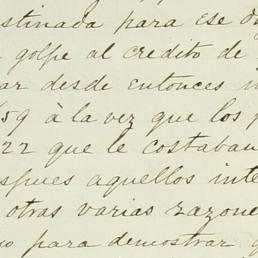 stinada para ese
golpe al credito de
ar desde entonces
59 à la vez que los
22 que le costaban
spues aquellos inte
otras varias razone
para demostrar